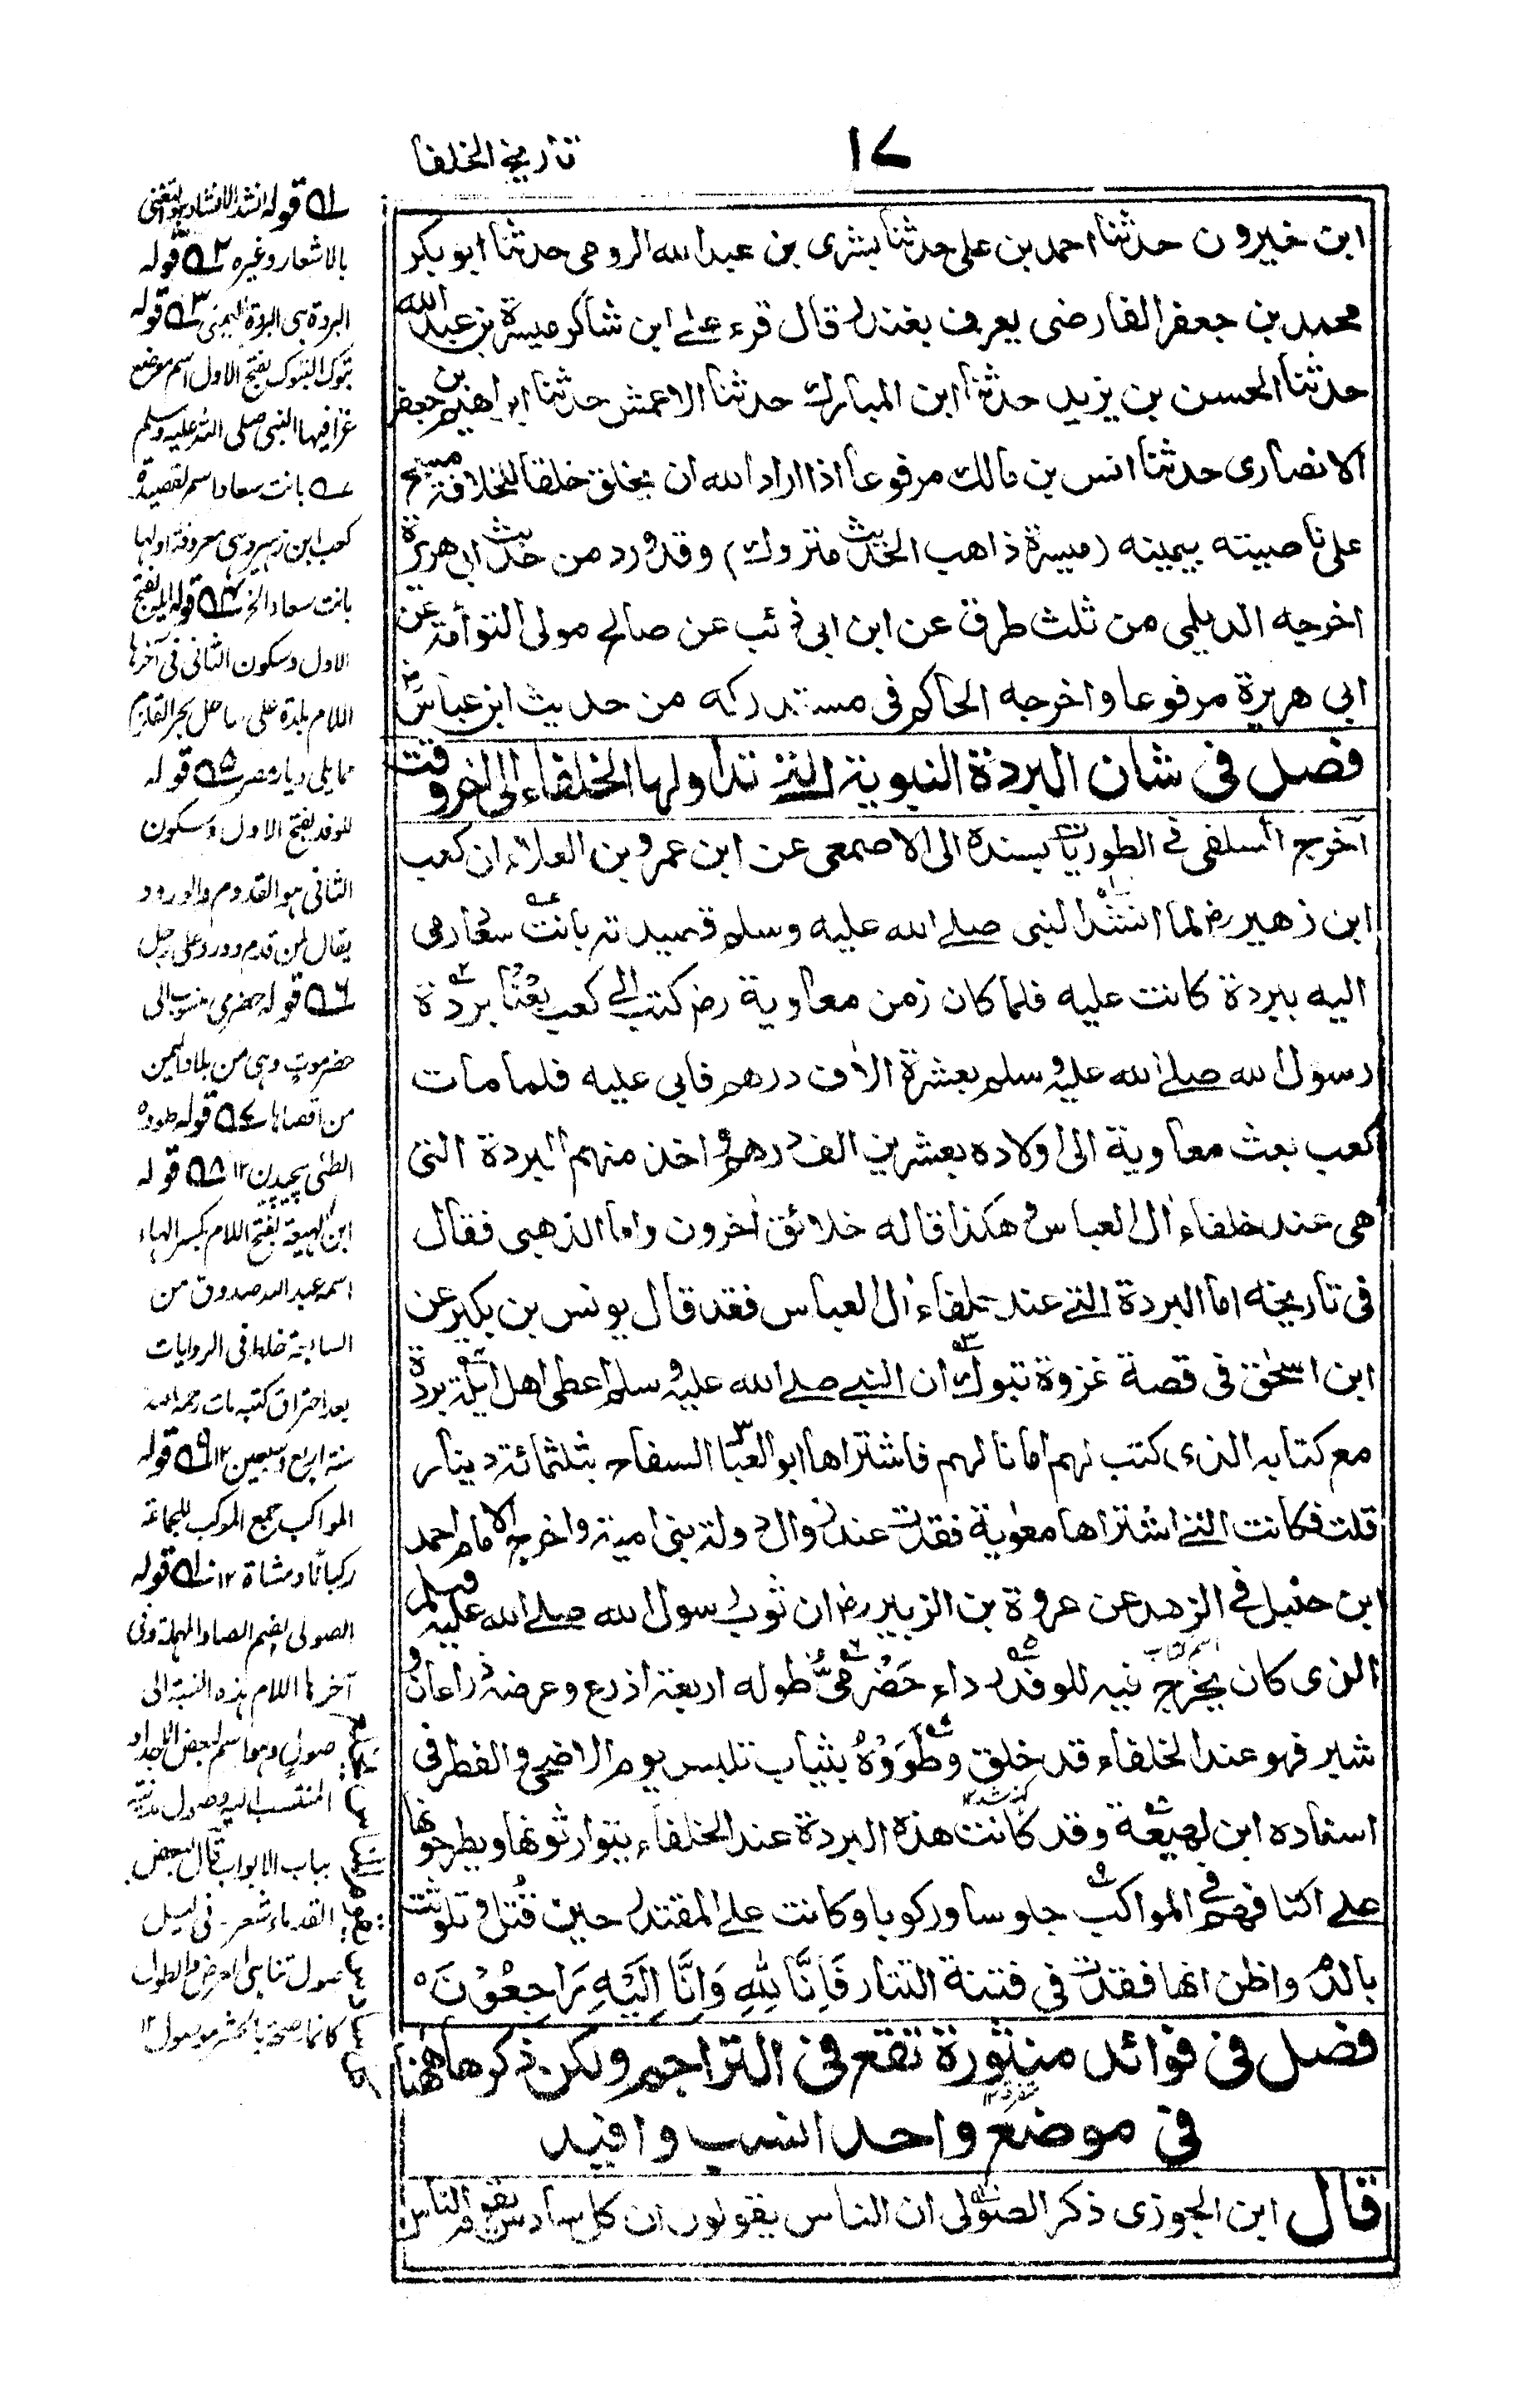 ١٧
تاريخ الخلفا
ابن خيرون حدثنا احمد بن على حدثنا بشرى بن عبد الله الرومى حدثنا ابو بكر
محمد بن جعفر الفارضى يعرف بغندر قال قرء على ابن شاكر ميسرة بن عبد الله
حدثنا الحسن بن يزيد حدثنا ابن المبارك حدثنا الاعمش حدثنا ابراهيم بن جعفر
الانصارى حدثنا انس بن مالك مرفوعا اذا اراد الله ان يخلق خلقا للخلافة مسح
على ناصيته بيمينه (ميسرة ذاهب الحديث متروك) وقد ورد من حديث ابى هريرة
اخرجه الديلمى من ثلث طرق عن ابن ابى ذئب عن صالح مولى التوأمة عن
ابى هريرة مرفوعا واخرجه الحاكم فى مستدركه من حديث ابن عباس
فصل فى شان البردة النبوية التى تداولها الخلفاء الى اخر وقت
اخرج السلفى فى الطوريات بسنده الى الاصمعى عن ابن عمرو بن العلاء ان كعب
ابن زهير رض لما انشد النبى صلى الله عليه وسلم قصيدته بانت سعاد رمى
اليه ببردة كانت عليه فلما كان زمن معاوية رض كتب الى كعب بعنا بردة
رسول الله صلى الله عليه وسلم بعشرة الاف درهم فابى عليه فلما مات
كعب بعث معاوية الى اولاده بعشرين الف درهم واخذ منهم البردة التى
هى عند خلفاء ال العباس وهكذا قاله خلائق اخرون واما الذهبى فقال
فى تاريخه اما البردة التى عند خلفاء ال العباس فقد قال يونس بن بكير عن
ابن اسحٰق فى قصة غزوة تبوك ان النبى صلى الله عليه وسلم اعطى اهل ايلة بردة
مع كتابه الذى كتب لهم امانا لهم فاشتراها ابو العباس السفاح بثلثمائة دينار
قلت فكانت التى اشتراها معوية فقدت عند زوال دولة بنى امية واخرج الامام احمد
ابن حنبل فى الزهد عن عروة بن الزبير رض ان ثوب رسول الله صلى الله عليه وسلم
الذى كان يخرج فيه للوفد رداء حَضْرَمِىٌّ طوله اربعة اذرع وعرضه ذراعان و
شبر فهو عند الخلفاء قد خلق وطَوَوْهُ بثياب تلبس يوم الاضحى والفطر فى
اسناده ابن لهيعة وقد كانت هذه البردة عند الخلفاء يتوارثونها ويطرحونها
على اكتافهم فى المواكب جلوسا وركوبا وكانت على المقتدر حين قُتل وتلوثت
بالدم واظن انها فقدت فى فتنة التتار فَاِنَّا لِلّٰهِ وَاِنَّا اِلَيْهِ رَاجِعُوْنَ
فصل فى فوائد منثورة تقع فى التراجم ولكن ذكرها ههنا
فى موضع واحد انسب وافيد
قال ابن الجوزى ذكر الصولى ان الناس يقولون ان كل سادس يقوم للناس
١ قوله انشد الانشاد هو التغنى
بالاشعار وغيره ٢ قوله
البردة هى البردة اليمنى ٣ قوله
تبوك التبوك بفتح الاول اسم موضع
غزا فيها النبى صلى الله عليه وسلم
بانت سعاد اسم لقصيدة
كعب ابن زهير وهى معروفة اولها
بانت سعاد الخ ٤ قوله ايلة بفتح
الاول وسكون الثانى فى آخرها
اللام بلدة على ساحل بحر القلزم
مما يلى ديار مصر ٥ قوله
للوفد بفتح الاول وسكون
الثانى هو القدوم والورود
يقال لمن قدم وورد على رجل
٦ قوله حضرمى منسوب الى
حضرموت وهى من بلاد اليمن
من اقصاها ٧ قوله طووه
الطى پیچیدن ١٢ ٨ قوله
ابن لهيعة بفتح اللام بكسر الهاء
اسمه عبد الله صدوق من
السابعة خلط فى الروايات
بعد احتراق كتبه مات رحمه الله
سنة اربع وسبعين ١٢ ٩ قوله
المواكب جمع الموكب للجماعة
ركبانا ومشاة ١٢ ١٠ قوله
الصولى بضم الصاد المهملة وفى
آخرها اللام هذه النسبة الى
صول وهو اسم لبعض الاجداد
المنتسب اليه وصول مدينة
بباب الابواب قال بعض
القدماء شعر فى ليل
صول تناهى العرض والطول
كانما صبحه بالحشر موصول ١٢